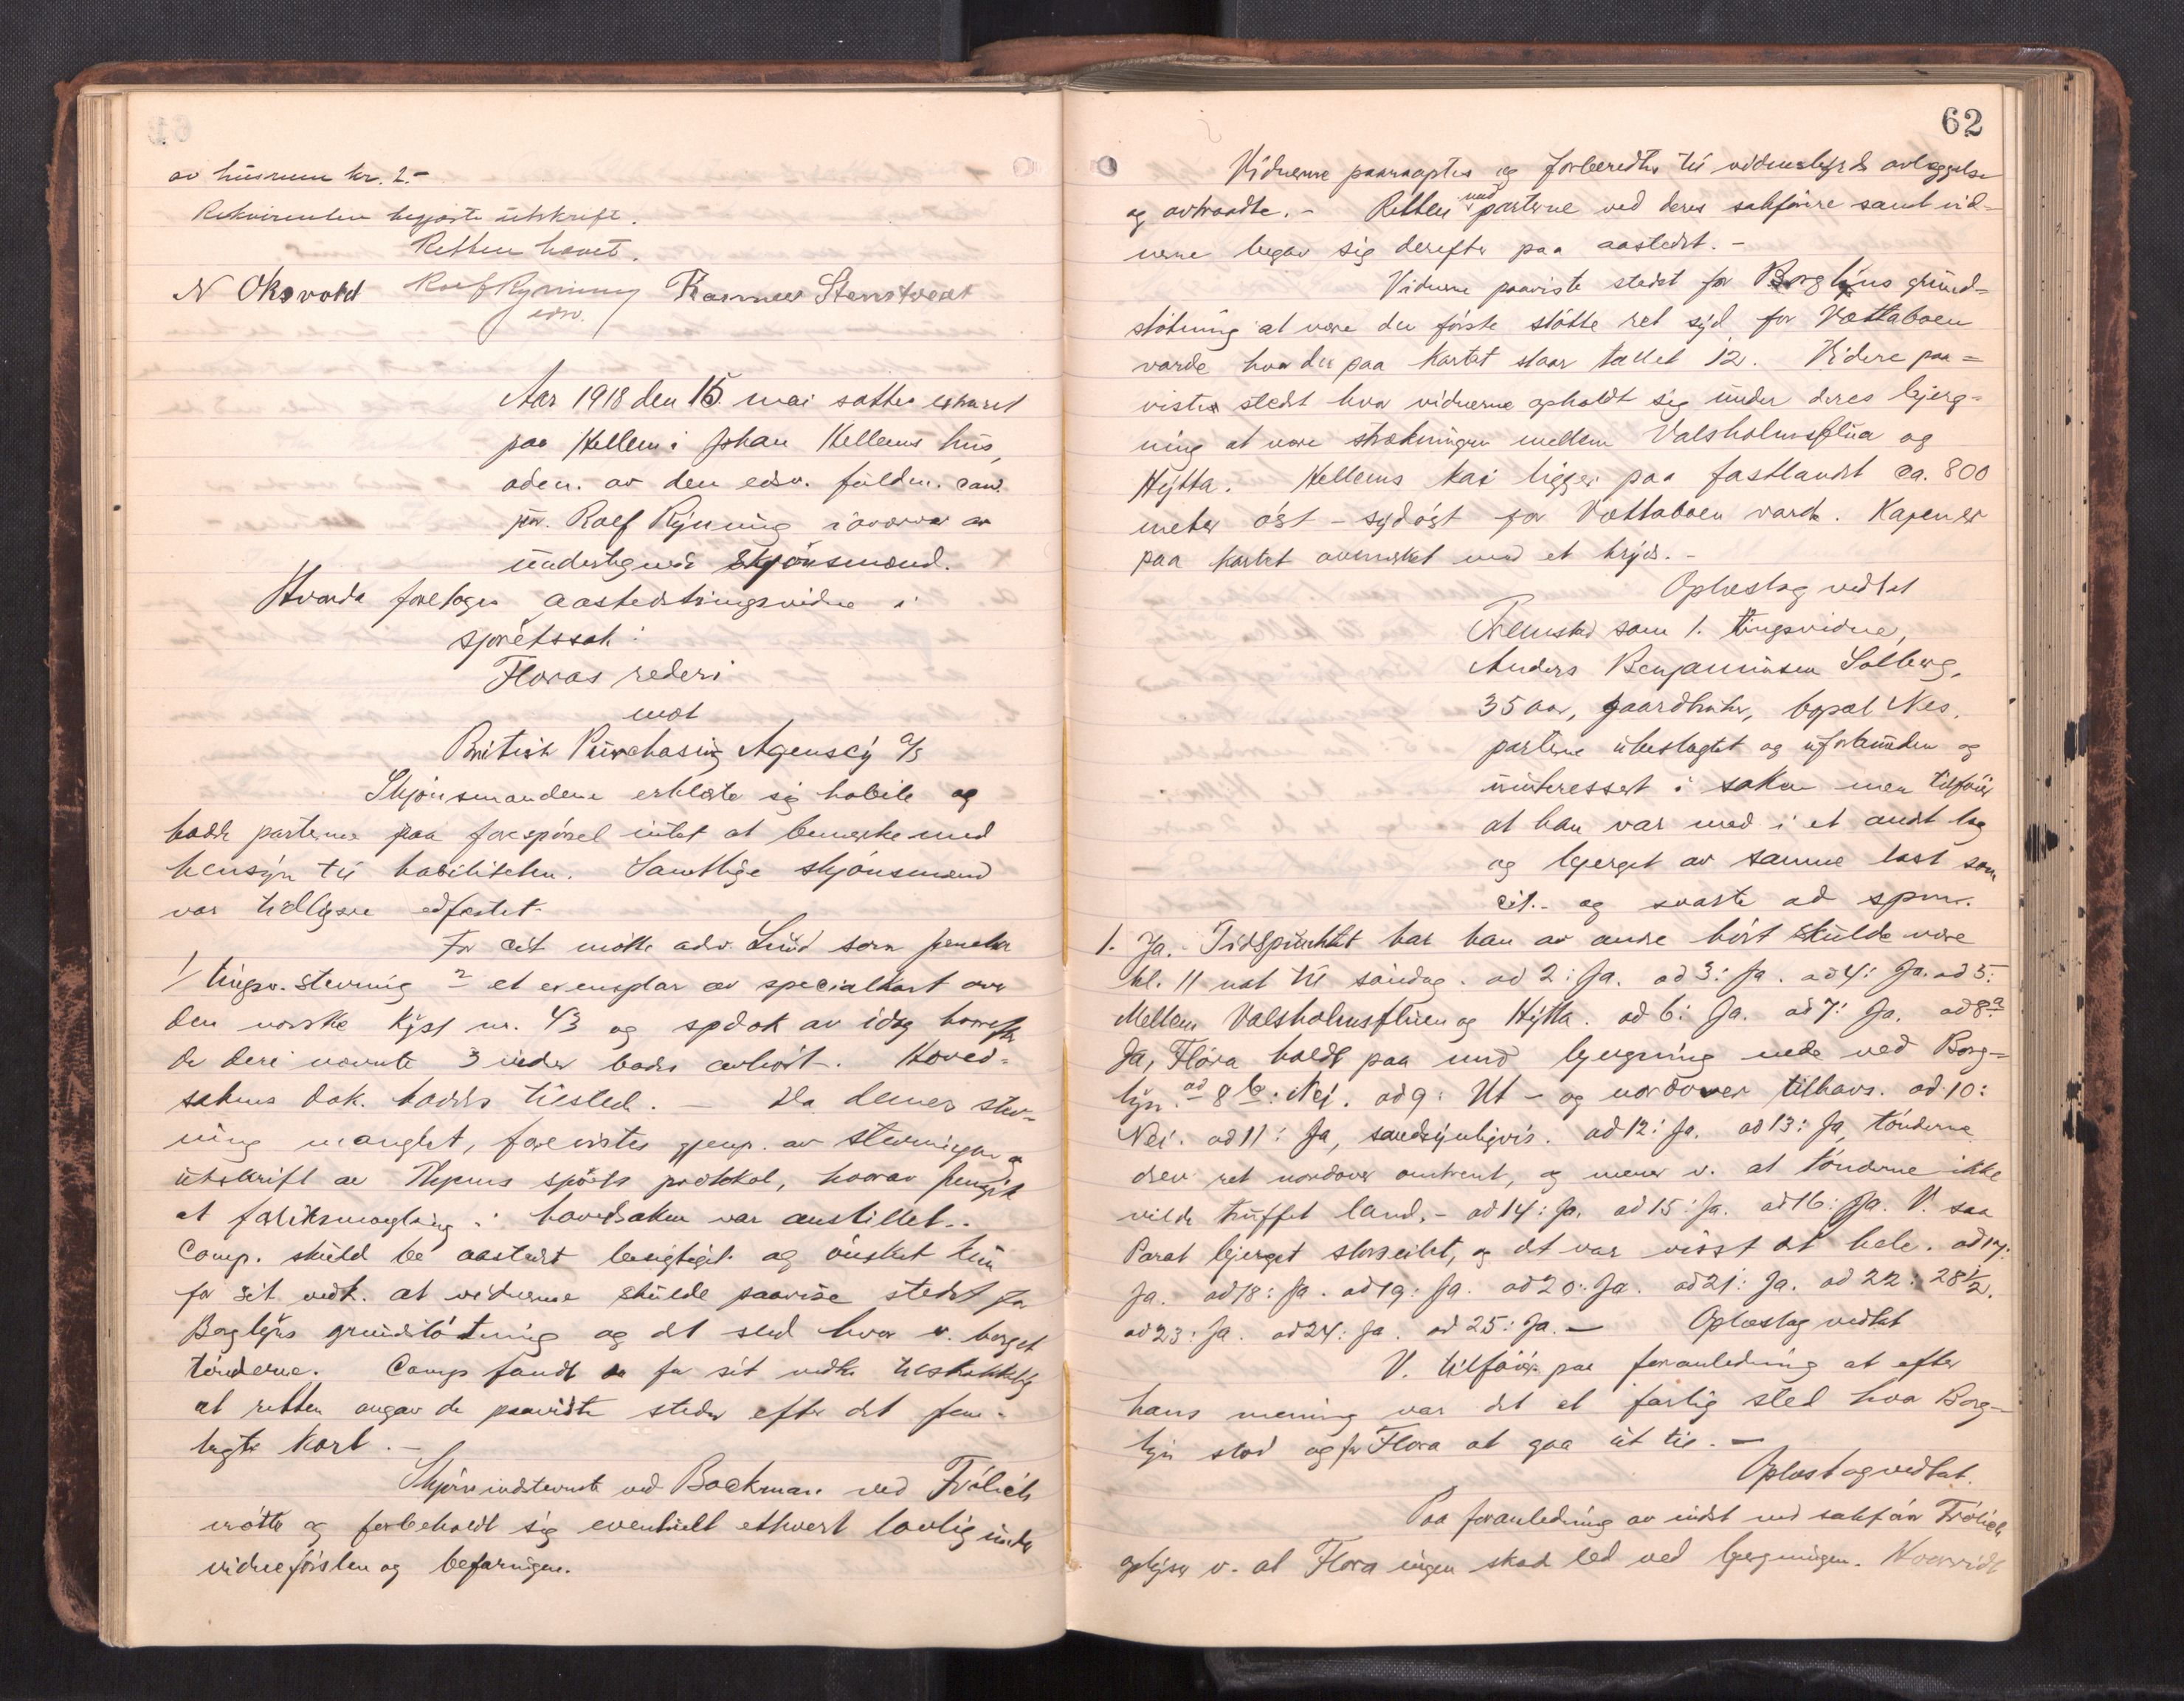 av husrum kr. 2.-
Rekvirenten begjærte utskrift.
Retten hævet.
N Oksvold Rolf Ryning Rasmus Stenstvedt
edsv.
Aar 1918 den 15. mai sattes extraret
paa Hellem i Johan Hellems hus,
adm. av den edsv. fuldm. cand.
jur. Rolf Ryning i overvær av
undertegnede skjønsmænd.
Hvorda foretoges aastedstingsvidne i
sjøretssak:
Floras rederi
mot
British Purchasing Agenscy a/s
Skjønsmændene erklærte sig habile og
hadde parterne paa forespørsel intet at bemerke med
hensyn til habiliteten. Samtlige skjønsmænd
var tidligere edfæstet.
For cit. møtte adv. Lund som fremla
1/ tingsv. stevning 2 et exemplar av specialkart over
den norske kyst nr. 43 og spdok av idag hvorefter
de deri nævnte 3 vidner bades avhørt. Hoved-
sakens dok. haddes tilstede. — Da denne stev-
ning manglet, forevistes gjenp. av stevningen og
utskrift av Thjems sjørets protokol, hvorav fremgik
at forliksmægling i hovedsaken var anstillet..
Comp. skuld be aastedet besigtiget og ønsket kun
for sit vedk. at vidnerne skulde paavise stedet for
Borglyns grundstøtning og det sted hvor v. berget
tønderne. Comp fandt for sit vedk. tilstrækkelig
at retten angav de paaviste steder efter det frem-
lagte kart.-
Skjønsindstevnte ved Backman ved Frölich
møtte og forbeholdt sig eventuelt ethvert lovlig under
vidneførslen og befaringen.
62
Vidnerne paaraaptes og forberedtes til vidnesbyrds avlæggelse
og avtraadte.- Retten med parterne ved deres sakførere samt vid-
nerne begav sig derefter paa aastedet.-
Vidnerne paaviste stedet for Borglyns grund-
støtning at være den første støtte ret syd for Vættaboen
varde hvor der paa kartet staar tallet 12. Videre paa-
vistes stedet hvor vidnerne opholdt sig under deres bjerg-
ning at være strækningen mellem Valsholmsflua og
Hytta. Hellems kai ligger paa fastlandet ca. 800
meter øst - sydøst for Vættaboen varde. Kajen er
paa kartet avmerket med et kryds.-
Oplæst og vedtat
Fremsted som 1. tingsvidne,
Anders Benjaminsen Solberg,
35 aar, gaardbruker, bopæl Nes,
parterne ubeslægtet og uforbunden og
uinteressert i saken men tilføier
at han var med i et andet lag
og bjerget av samme last som
cit.- og svarte ad spm.
1. Ja.- Tidspunktet har han av andre hørt skulde være
kl. 11 nat til søndag. ad 2: Ja. ad 3: Ja. ad 4: Ja. ad 5:
Mellem Valsholmsfluen og Hytta. ad 6: Ja. ad 7: Ja. ad 8 a
Ja, Flora holdt paa med bjergning nede ved Borg-
lyn.- ad 8 b: Nej. ad 9: Ut - og nordover tilhavs. ad 10:
Nei. ad 11: Ja, sandsynligvis. ad 12: Ja. ad 13: Ja, tønderne
drev ret nordover omtrent, og mener v. at tønderne ikke
vilde truffet land.- ad 14: Ja. ad 15: Ja. ad 16: Ja. V. saa
Parat bjerget storseilet, og det var visst at hele. ad 17:
Ja. ad 18: Ja. ad 19: Ja. ad 20: Ja. ad 21: Ja. ad 22: 28½.
ad 23: Ja. ad 24: Ja. ad 25: Ja. — Oplæst og vedtat
V. tilføier paa foranledning at efter
hans mening var det et farlig sted hvor Borg-
lyn stod og for Flora at gaa ut til. —
Oplæst og vedtat.
Paa foranledning av indst. ved sakfører Frölich
oplyser v. at Flora ingen skade led ved bjergningen. Hvorvidt